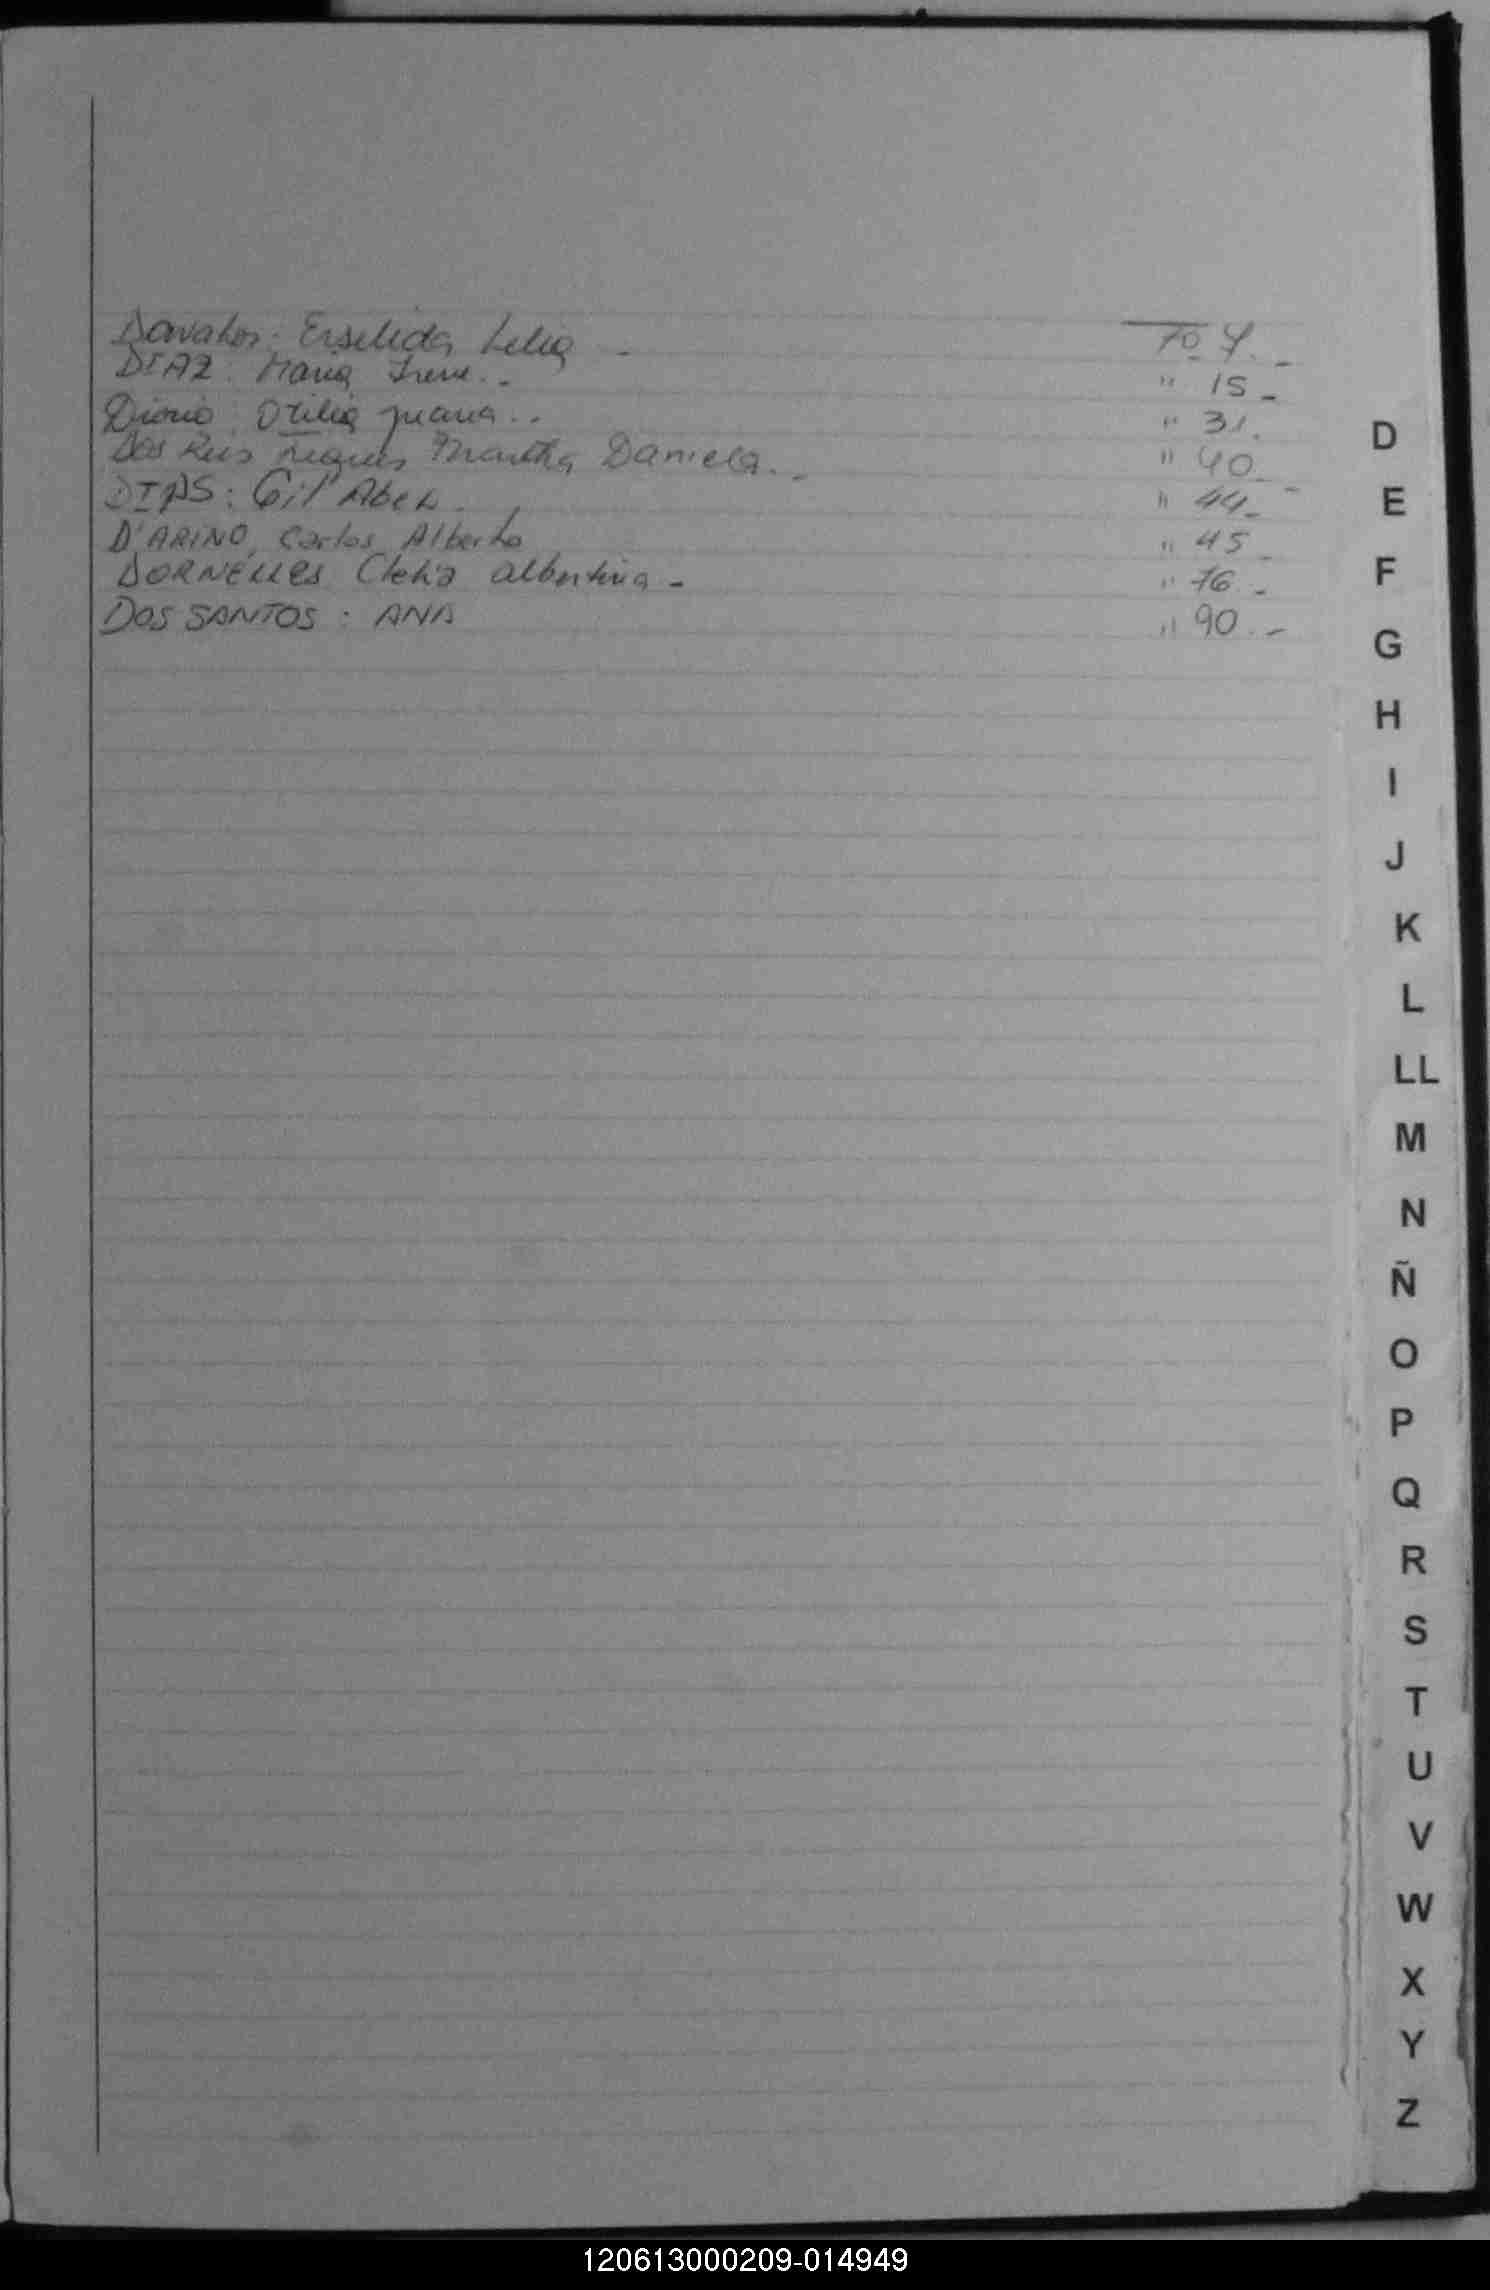 Davalos. Ersilida Lelia - Fo 7.-
DIAZ: Maria Irene.- " 15-
Diorio: Otilia Juana.. " 31.
Dos Reis Martha Daniela.- " 40.-
DIAS: Gil Abel. " 44-
D'ARINO, Carlos Alberto " 45-
DORNELLES Clelia albertina - " 76.-
DOS SANTOS: ANA " 90.-
D
E
F
G
H
I
J
K
L
LL
M
N
Ñ
O
P
Q
R
S
T
U
V
W
X
Y
Z
120613000209-014949